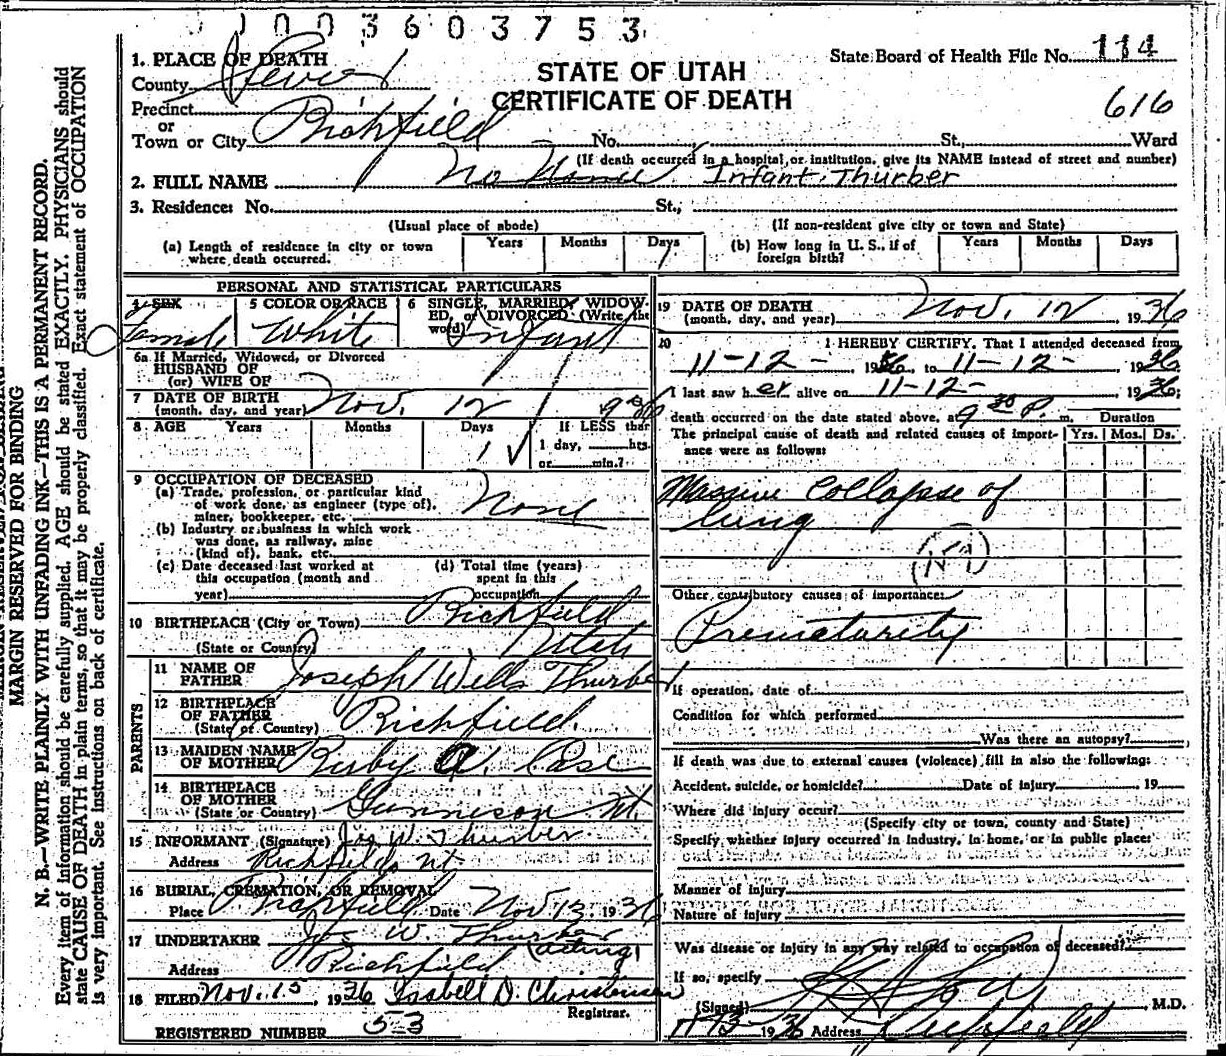 1003603753
State Board of Health File No. 114
1. PLACE OF DEATH
County Sevier
STATE OF UTAH
CERTIFICATE OF DEATH
616
Precinct
or
Town or City Richfield No. St., Ward
(If death occurred in a hospital or institution, give its NAME instead of street and number)
2. FULL NAME No Name Infant Thurber
3. Residence: No. St.,
(Usual place of abode) (If non-resident give city or town and State)
(a) Length of residence in city or town where death occurred. Years Months Days 1 (b) How long in U. S., if of foreign birth? Years Months Days
PERSONAL AND STATISTICAL PARTICULARS
4 SEX Female
5 COLOR OR RACE White
6 SINGLE, MARRIED, WIDOWED, or DIVORCED (Write the word) Infant
6a If Married, Widowed, or Divorced
HUSBAND OF
(or) WIFE OF
7 DATE OF BIRTH
(month, day, and year) Nov. 12 1936
8 AGE Years Months Days 1 If LESS than
1 day, hrs.
or min.?
9 OCCUPATION OF DECEASED
(a) Trade, profession, or particular kind
of work done, as engineer (type of),
miner, bookkeeper, etc. None
(b) Industry or business in which work
was done, as railway, mine
(kind of), bank, etc.
(c) Date deceased last worked at
this occupation (month and
year)
(d) Total time (years)
spent in this
occupation
10 BIRTHPLACE (City or Town) Richfield
(State or Country) Utah
PARENTS
11 NAME OF
FATHER Joseph Wells Thurber
12 BIRTHPLACE
OF FATHER
(State or Country) Richfield
13 MAIDEN NAME
OF MOTHER Ruby A. Case
14 BIRTHPLACE
OF MOTHER
(State or Country) Gunnison Ut.
15 INFORMANT (Signature) Jos W. Thurber
Address Richfield Ut
16 BURIAL, CREMATION, OR REMOVAL
Place Richfield Date Nov 13 1936
17 UNDERTAKER Jos W. Thurber
(acting)
Address Richfield
18 FILED Nov. 15, 1936 Isabell D. Christensen
Registrar.
REGISTERED NUMBER 53
19 DATE OF DEATH
(month, day, and year) Nov. 12 1936
20 I HEREBY CERTIFY, That I attended deceased from
11-12- 1936, to 11-12- 1936.
I last saw her alive on 11-12- 1936;
death occurred on the date stated above, at 9 30 P. m. Duration
The principal cause of death and related causes of importance were as follows: Yrs. Mos. Ds.
Massive collapse of
lung
Other contributory causes of importance:
Prematurity
If operation, date of
Condition for which performed
Was there an autopsy?
If death was due to external causes (violence) fill in also the following:
Accident, suicide, or homicide? Date of injury 19
Where did injury occur?
(Specify city or town, county and State)
Specify whether injury occurred in industry, in home, or in public place:
Manner of injury
Nature of injury
Was disease or injury in any way related to occupation of deceased?
If so, specify
(Signed) M.D.
11-13-1936 Address Richfield
MARGIN RESERVED FOR BINDING
N. B.—WRITE PLAINLY WITH UNFADING INK—THIS IS A PERMANENT RECORD.
Every item of information should be carefully supplied. AGE should be stated EXACTLY. PHYSICIANS should
state CAUSE OF DEATH in plain terms, so that it may be properly classified. Exact statement of OCCUPATION
is very important. See instructions on back of certificate.